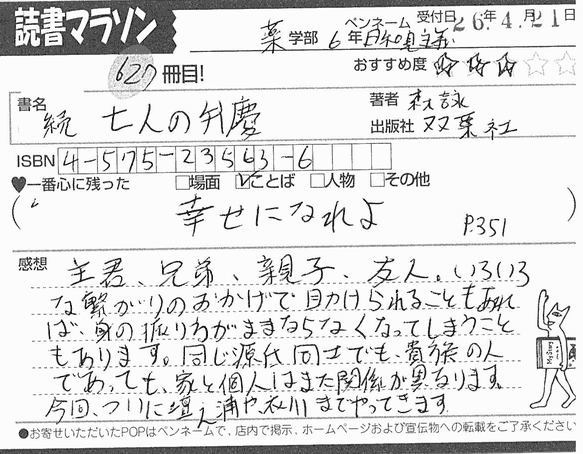 読書マラソン
薬学部 6年 ペンネーム 日和見主義 受付日26年4月21日
627冊目!
おすすめ度 ★★★☆☆
書名 続 七人の弁慶
著者 森詠
出版社 双葉社
ISBN 4-575-23563-6
♥一番心に残った □場面 ☑ことば □人物 □その他
( 幸せになれよ P.351 )
感想 主君、兄弟、親子、友人。いろいろ
な繋がりのおかげで助けられることもあれ
ば、身の振り方がままならなくなってしまうこと
もあります。同じ源氏同士でも、貴族の人
であっても、家と個人はまた関係が異なります。
今回、ついに壇ノ浦や衣川までやってきます。
●お寄せいただいたPOPはペンネームで、店内で掲示、ホームページおよび宣伝物への転載をご了承ください